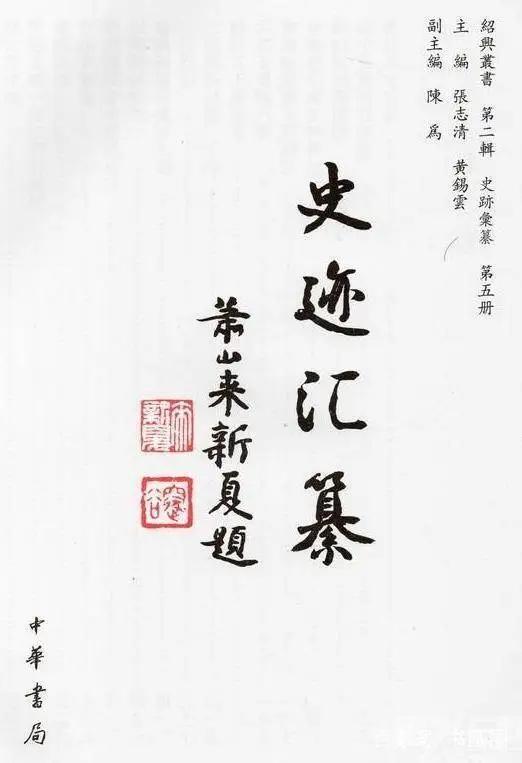 紹興叢書 第二輯 史跡彙纂 第五册
主編 張志清 黃錫雲
副主編 陳為
史迹汇纂
萧山来新夏题
中華書局